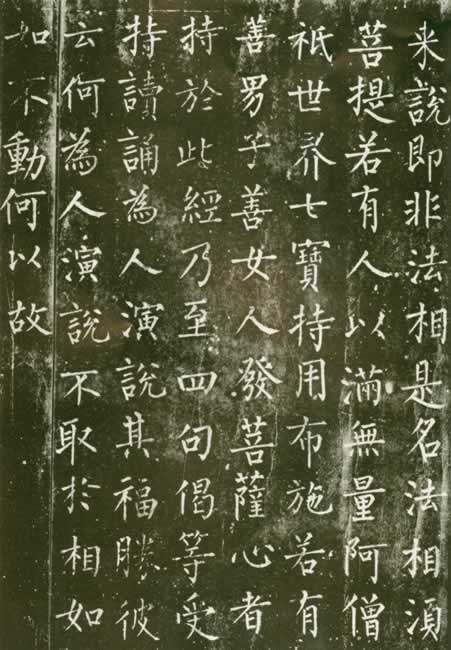 来說即非法相是名法相須
菩提若有人以滿無量阿僧
祇世界七寶持用布施若有
善男子善女人發菩薩心者
持於此經乃至四句偈等受
持讀誦為人演說其福勝彼
云何為人演說不取於相如
如不動何以故